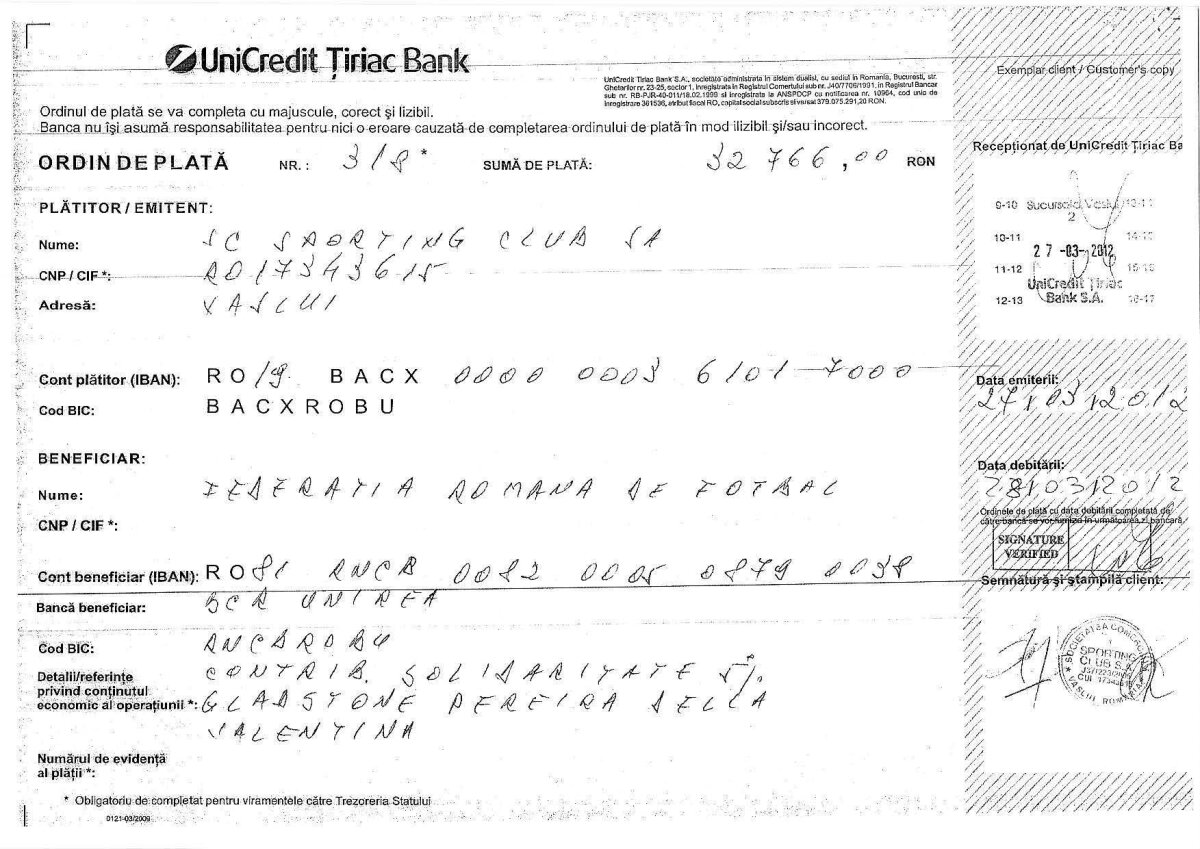 UniCredit Țiriac Bank
UniCredit Tiriac Bank S.A., societate administrata in sistem dualist, cu sediul in Romania, Bucuresti, str.
Ghetarilor nr. 23-25, sector 1, inregistrata in Registrul Comertului sub nr. J40/7706/1991, in Registrul Bancar
sub nr. RB-PJR-40-011/18.02.1999 si inregistrata la ANSPDCP cu notificarea nr. 10964, cod unic de
inregistrare 361536, atribut fiscal RO, capital social subscris si varsat 379.075.291,20 RON.
Exemplar client / Customer's copy
Ordinul de plată se va completa cu majuscule, corect și lizibil.
Banca nu își asumă responsabilitatea pentru nici o eroare cauzată de completarea ordinului de plată în mod ilizibil și/sau incorect.
ORDIN DE PLATĂ NR.: 318 * SUMĂ DE PLATĂ: 32 766,00 RON
Recepționat de UniCredit Țiriac Ba
PLĂTITOR / EMITENT:
Nume: SC SPORTING CLUB SA
CNP / CIF *: RO17343615
Adresă: VASLUI
9-10 Sucursala Vaslui
2
10-11
27 -03- 2012
11-12 15-16
UniCredit Țiriac
12-13 Bank S.A. 16-17
Cont plătitor (IBAN): RO19 BACX 0000 0003 6101 7000
Cod BIC: BACXROBU
Data emiterii:
27 03 2012
BENEFICIAR:
Nume: FEDERATIA ROMANA DE FOTBAL
CNP / CIF *:
Data debitării:
28 03 2012
Ordinele de plată cu data debitării completată de
către bancă se vor furniza în următoarea zi bancară.
SIGNATURE
VERIFIED
Cont beneficiar (IBAN): RO81 RNCB 0082 0005 0879 0038
Bancă beneficiar: BCR UNIREA
Cod BIC: RNCBROBU
Semnătură și ștampilă client:
SOCIETATEA COMERCIALA
SPORTING
CLUB S.A.
VASLUI ROMANIA
Detalii/referințe
privind conținutul
economic al operațiunii *:
CONTRIB. SOLIDARITATE 5%
GLADSTONE PEREIRA DELLA
VALENTINA
Numărul de evidență
al plății *:
* Obligatoriu de completat pentru viramentele către Trezoreria Statului
0121-03/2009